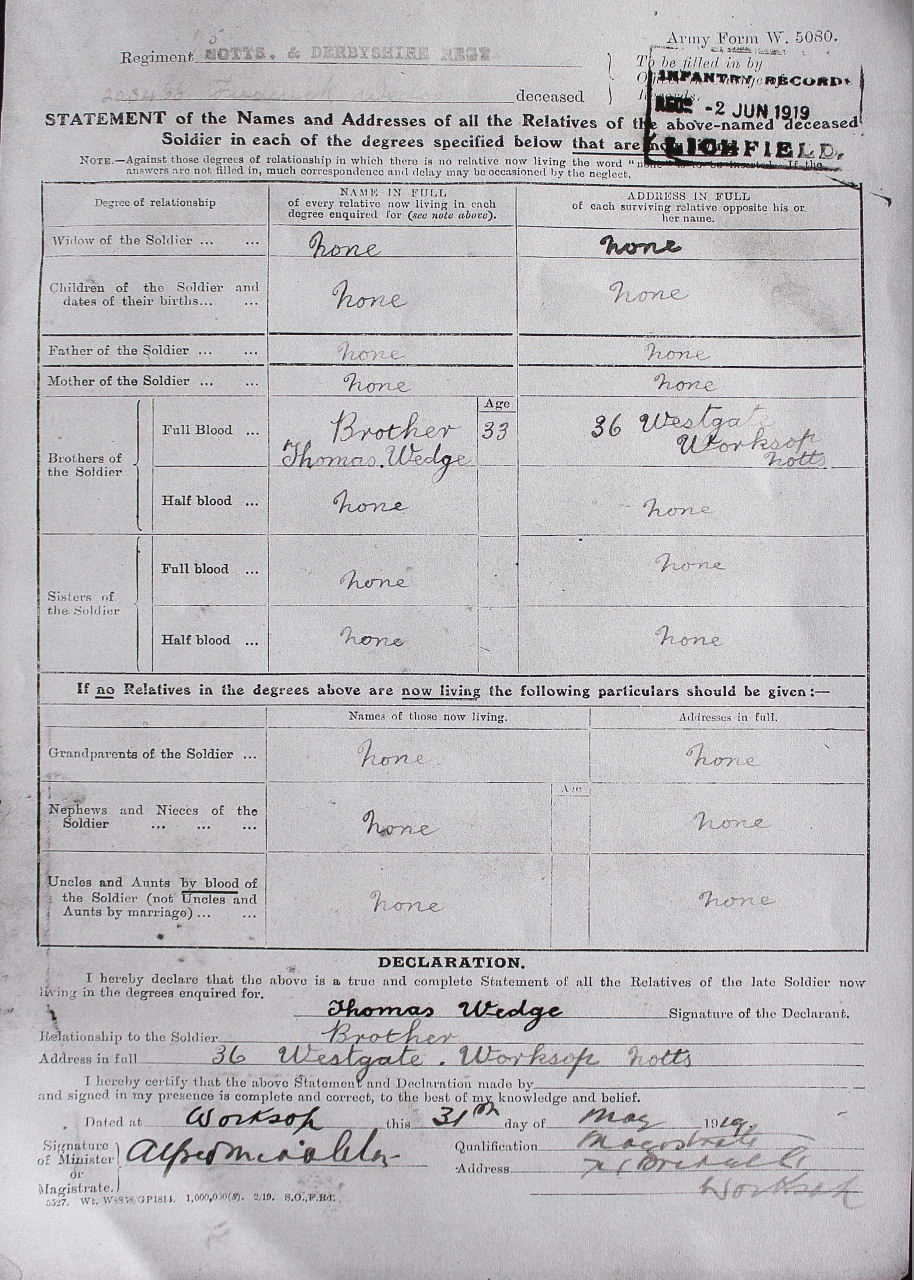 Army Form W. 5080.
Regiment NOTTS. & DERBYSHIRE REGT
To be filled in by
INFANTRY RECORDS
REC. -2 JUN 1919
LICHFIELD.
deceased
STATEMENT of the Names and Addresses of all the Relatives of the above-named deceased
Soldier in each of the degrees specified below that are
NOTE.—Against those degrees of relationship in which there is no relative now living the word If the
answers are not filled in, much correspondence and delay may be occasioned by the neglect.
Degree of relationship
NAME IN FULL
of every relative now living in each
degree enquired for (see note above).
ADDRESS IN FULL
of each surviving relative opposite his or
her name.
Widow of the Soldier ... ... none none
Children of the Soldier and
dates of their births... ... none none
Father of the Soldier ... ... none none
Mother of the Soldier ... ... none none
Age
Brothers of
the Soldier
Full Blood ... Brother 33 36 Westgate
Thomas. Wedge Worksop
Notts
Half blood ... none none
Sisters of
the Soldier
Full blood ... none none
Half blood ... none none
If no Relatives in the degrees above are now living the following particulars should be given:—
Names of those now living. Addresses in full.
Grandparents of the Soldier ... none none
Age
Nephews and Nieces of the
Soldier ... ... ... none none
Uncles and Aunts by blood of
the Soldier (not Uncles and
Aunts by marriage) ... ... none none
DECLARATION.
I hereby declare that the above is a true and complete Statement of all the Relatives of the late Soldier now
living in the degrees enquired for.
Thomas Wedge Signature of the Declarant.
Relationship to the Soldier Brother
Address in full 36 Westgate. Worksop Notts
I hereby certify that the above Statement and Declaration made by
and signed in my presence is complete and correct, to the best of my knowledge and belief.
Dated at Worksop this 31st day of May 1919.
Signature
of Minister
or
Magistrate.
Qualification Magistrate
Address
Worksop
5527. Wt. W-858/GP1814. 1,000,000(8). 2/19. S.O.,F.Rd.